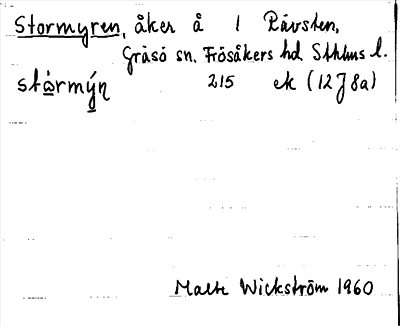 Stormyren, åker å 1 Rävsten,
Gräsö sn. Frösåkers hd. Sthlms l.
stårmýn 215 ek (12J8a)
Malte Wickström 1960